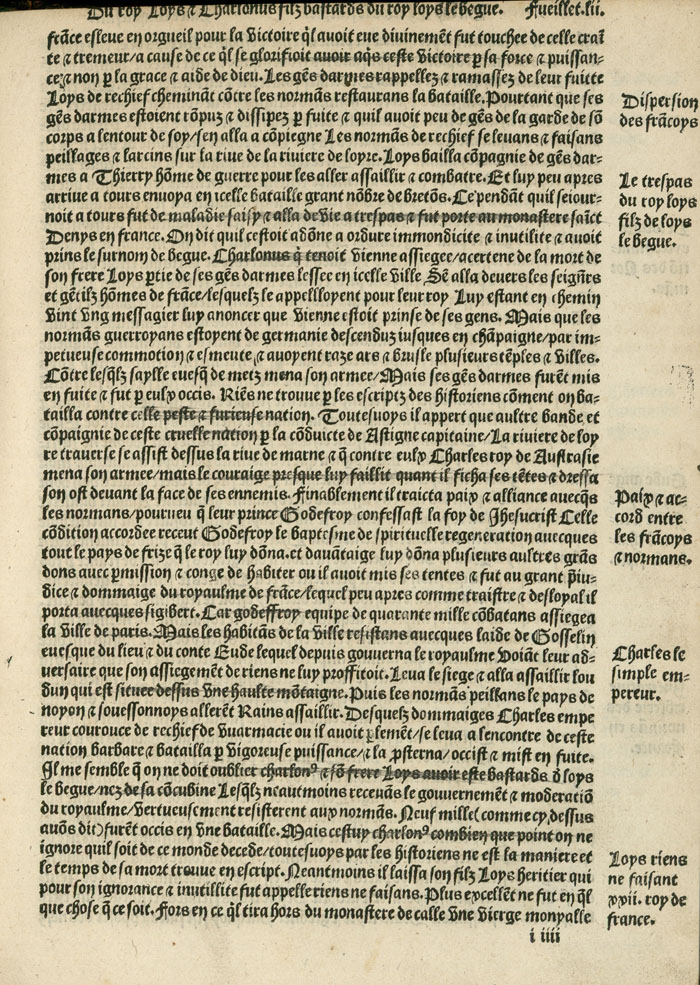 Du roy Loys & Charlonus filz bastards du roy loys le begue. Fueillet.lii.
frãce esleue en orgueil pour la victoire ql auoit eue diuinemẽt fut touchee de celle craĩ
te & tremeur/a cause de ce ql se glorifioit auoir aq̃s ceste victoire p sa force & puissan-
ce/& non p la grace & aide de dieu. Les gẽs darmes rappellez & ramassez de leur fuitte
Loys de rechief cheminãt cõtre les normãs restaurans la bataille. Pourtant que ses
gẽs darmes estoient rõpuz & dissipez p fuite & quil auoit peu de gẽs de la garde de sõ
corps a lentour de soy/sen alla a cõpiegne Les normãs de rechief se leuans & faisans
peillages & larcins sur la riue de la riuiere de loyre. Loys bailla cõpagnie de gẽs dar-
mes a Thierry hõme de guerre pour les aller assaillir & combatre. Et luy peu apres
arriue a tours enuoya en icelle bataille grant nõbre de bretõs. Ce pẽdant quil seiour-
noit a tours fut de maladie saisy & alla de vie a trespas & fut porte au monastere saĩct
Denys en france. On dit quil cestoit adõne a ordure immondicite & inutilite & auoit
prins le surnom de begue. Charlonus q̃ tenoit vienne assiegee/acertene de la mort de
son frere Loys ptie de ses gẽs darmes lessee en icelle ville Sẽ alla deuers les seignrs
et gẽtilz hõmes de frãce/lesquelz le appelloyent pour leur roy Luy estant en chemin
vint vng messagier luy anoncer que vienne estoit prinse de ses gens. Mais que les
normãs guerroyans estoyent de germanie descenduz iusques en chãpaigne/par im-
petueuse commotion & esmeute/& auoyent raze ars & brusle plusieurs tẽples & villes.
Cõtre lesqlz saylle euesq̃ de metz mena son armee/Mais ses gẽs darmes furẽt mis
en fuite & fut p eulx occis. Riẽs ne trouue p les escriptz des historiens cõment on ba-
tailla contre celle peste & furieuse nation. Toutesuoys il appert que aultre bande et
cõpaignie de ceste cruelle nation p la cõduicte de Astigne capitaine/La riuiere de loy
re trauerse se assist dessus la riue de marne & q̃ contre eulx Charles roy de Austrasie
mena son armee/mais le couraige presque luy faillit quant il ficha ses tẽtes & dressa
son ost deuant la face de ses ennemis. Finablement il traicta paix & alliance auecq̃s
les normans/pourueu q̃ leur prince Godeffroy confessast la foy de Jhesucrist Celle
cõdition accordee receut Godeffroy le baptesme de spirituelle regeneration auecques
tout le pays de frize q̃ le roy luy dõna. et dauãtaige luy dõna plusieurs aultres grãs
dons auec pmission & conge de habiter ou il auoit mis ses tentes & fut au grant p̃iu-
dice & dommaige du royaulme de frãce/lequel peu apres comme traistre & desloyal il
porta auecques sigibert. Car godeffroy equipe de quarante mille cõbatans assiegea
la ville de paris. Mais les habitãs de la ville resistans auecques laide de Gosselin
euesque du lieu & du conte Eude lequel depuis gouuerna le royaulme Voiãt leur ad-
uersaire que son assiegemẽt de riens ne luy proffitoit. Leua le siege & alla assaillir lou
dun qui est situee dessus vne haulte mõtaigne. Puis les normãs peillans le pays de
noyon & souessonnoys allerẽt Rains assaillir. Desquelz dommaiges Charles empe
reur courouce de rechief de vuarmacie ou il auoit plemẽt/se leua a lencontre de ceste
nation barbare & batailla p vigoreuse puissance/& la psterna/occist & mist en fuite.
Il me semble q̃ on ne doit oublier charlonꝰ & sõ frere Loys auoir este bastards d̾ loys
le begue/nez de sa cõcubine Lesqlz neautmoins receuãs le gouuernemẽt & moderatiõ
du royaulme/vertueusement resisterent aux normãs. Neuf mille( comme cy dessus
auõs dit)furẽt occis en vne bataille. Mais cestuy charlonꝰ combien que point on ne
ignore quil soit de ce monde decede/toutesuoys par les historiens ne est la maniere et
le temps de sa mort trouue en escript. Neantmoins il laissa son filz Loys heritier qui
pour son ignorance & inutillite fut appelle riens ne faisans. Plus excellẽt ne fut en ql
que chose q̃ ce soit. Fors en ce ql tira hors du monastere de calle vne vierge monyalle
i iiii
Dispersion
des frãcoys
Le trespas
du roy loys
filz de loys
le begue.
Paix & ac-
cord entre
les frãcoys
& normans.
Charles le
simple em-
pereur.
Loys riens
ne faisant
xxii. roy de
france.